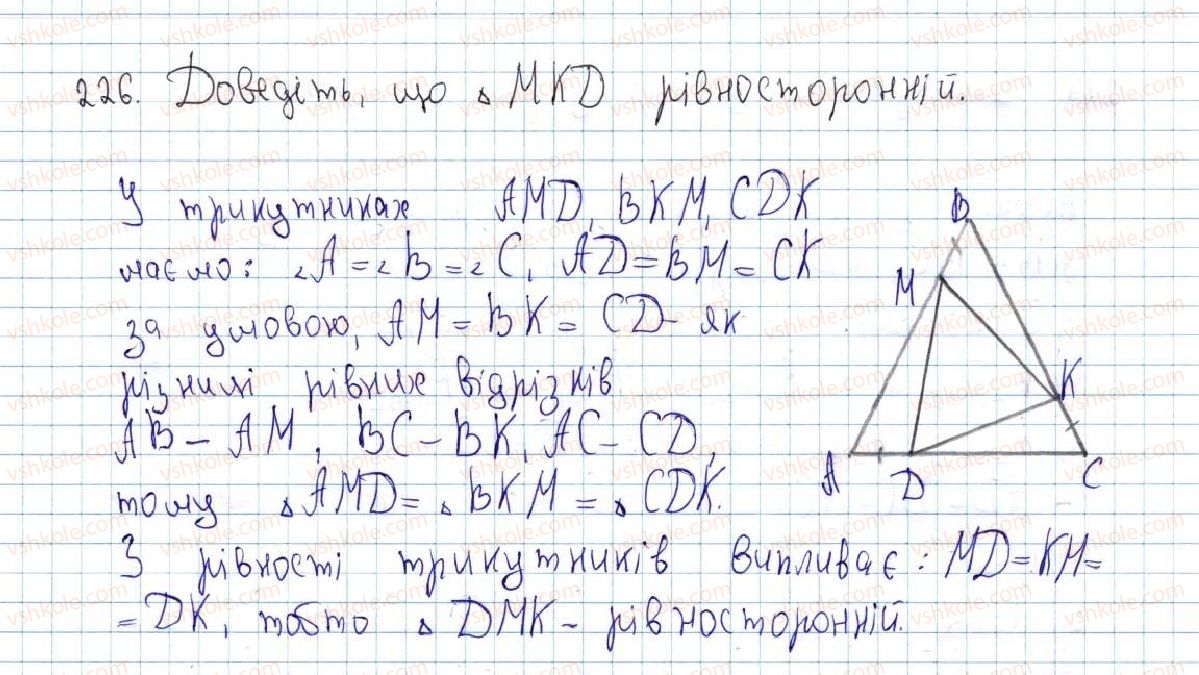 226. Доведіть, що △MKD рівносторонній.
У трикутниках AMD, BKM, CDK
маємо: ∠A = ∠B = ∠C, AD = BM = CK
за умовою, AM = BK = CD - як
різниці рівних відрізків
AB - AM, BC - BK, AC - CD,
тому △AMD = △BKM = △CDK.
З рівності трикутників випливає: MD = KM =
= DK, тобто △DMK - рівносторонній.
B
M
K
A
D
C
vshkole.com